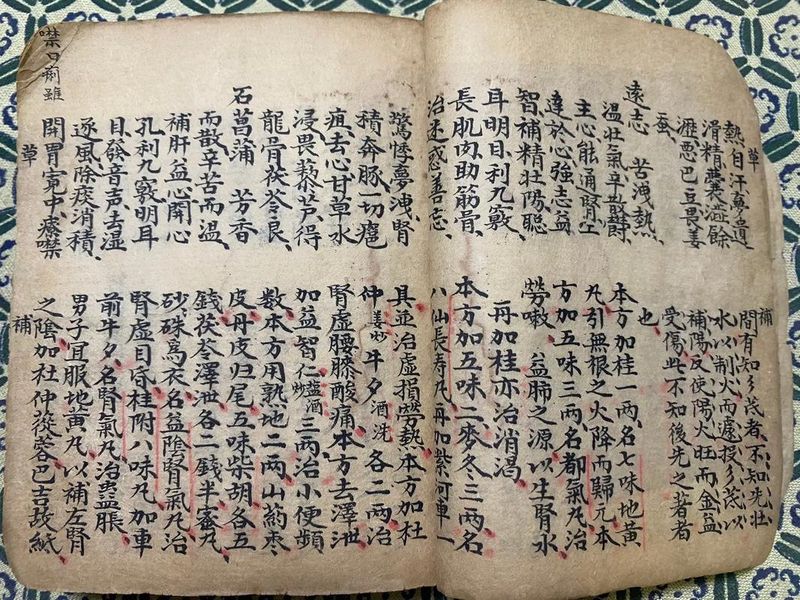 草
熱自汗夢遺
滑精
瀝惡巴豆畏姜
蚕
遠志 苦洩熱
溫壯氣辛散鬱
主心能通腎上
達於心強志益
智補精壯陽聰
耳明目利九竅
長肌肉助筋骨
治迷惑善忘
補
間有知者不知先壯
水以制火而遽投以
補陽反使陽火旺而金益
受傷此不知後先之著者
也
本方加桂一两名七味地黄
丸引無根之火降而歸元本
方加五味三两名都氣丸治
勞嗽益肺之源以生腎水
再加桂亦治消渴
本方加五味二麥冬三两名
八仙長寿丸再加紫河車一
驚悸夢洩腎
積奔豚一切癰
疽去心甘草水
浸畏藜芦得
龍骨茯苓良
石菖蒲 芳香
而散辛苦而温
補肝益心開心
孔利九竅明耳
目發音声去湿
逐風除痰消積
開胃寬中療噤
草
噤口痢雖
具並治虛損勞熱本方加杜
仲姜炒牛夕酒洗各二两治
腎虛腰膝酸痛本方去澤泄
加益智仁盐酒炒三两治小便頻
数本方用熟地二两山葯枣
皮丹皮归尾五味柴胡各五
錢茯苓澤泄各二錢半蜜丸
砂硃爲衣名益陰腎氣丸治
腎虛目昏桂附八味丸加車
前牛夕名腎氣丸治蠱脹
男子宜服地黄丸以補左腎
之陰加杜仲蓯蓉巴吉故紙
補